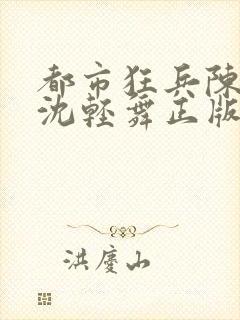 都市狂兵陳
沈輕舞正版
洪慶山